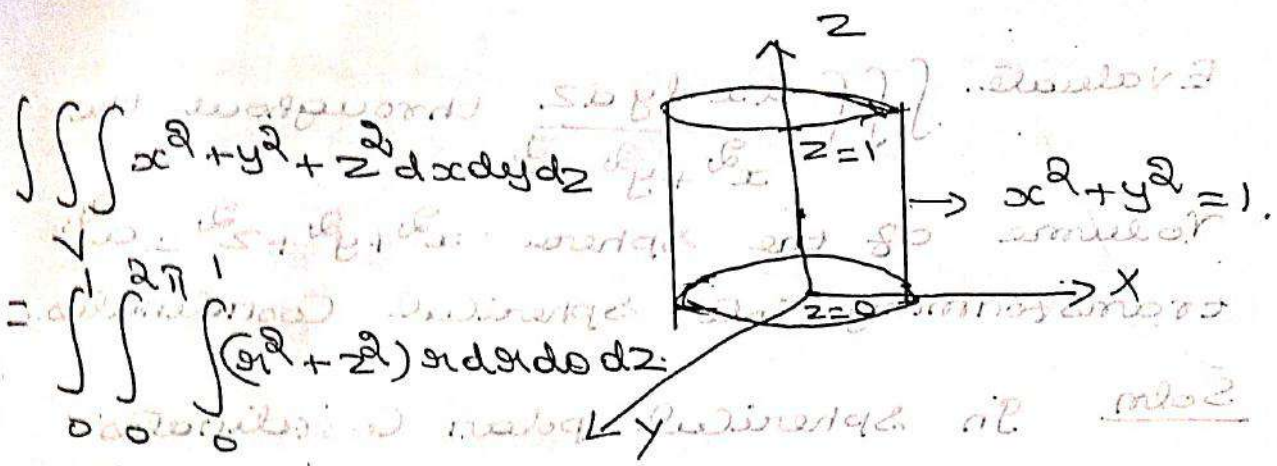 ∫∫∫ x² + y² + z² dxdydz
V
= ∫₀¹ ∫₀^2π ∫₀¹ (r² + z²) r dr dθ dz.
Z
z=1
→ x² + y² = 1.
X
z=0
Y